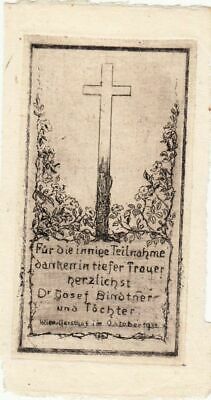 Für die innige Teilnahme
danken in tiefer Trauer
herzlichst
Dr Josef Bindtner
und Töchter.
Wien, Gersthof im Oktober